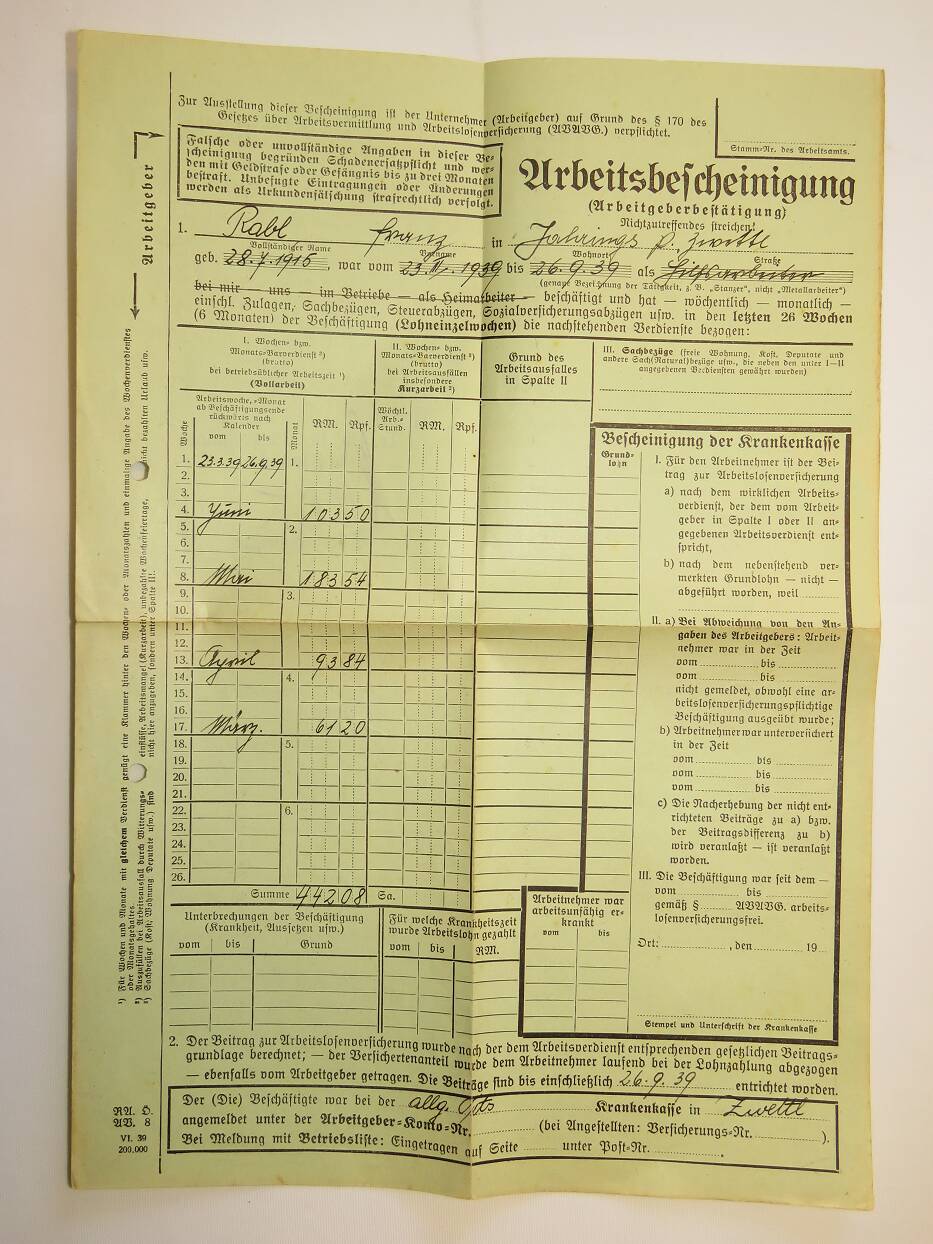 Zur Ausstellung dieser Bescheinigung ist der Unternehmer (Arbeitgeber) auf Grund des § 170 des
Gesetzes über Arbeitsvermittlung und Arbeitslosenversicherung (AVAVG.) verpflichtet.
Stamm-Nr. des Arbeitsamts.
Falsche oder unvollständige Angaben in dieser Be-
scheinigung begründen Schadenersatzpflicht und wer-
den mit Geldstrafe oder Gefängnis bis zu drei Monaten
bestraft. Unbefugte Eintragungen oder Änderungen
werden als Urkundenfälschung strafrechtlich verfolgt.
Arbeitsbescheinigung
(Arbeitgeberbestätigung)
Nichtzutreffendes streichen!
1. Rabl Franz in Jahrings P. Zwettl
Vollständiger Name Vorname Wohnort Straße
geb. 28.7.1915, war vom 23.III.1939 bis 26.9.39 als Hilfsarbeiter
(genaue Bezeichnung der Tätigkeit, z. B. „Stanzer“, nicht „Metallarbeiter“)
bei mir — uns — im Betriebe — als Heimarbeiter — beschäftigt und hat — wöchentlich — monatlich —
einschl. Zulagen, Sachbezügen, Steuerabzügen, Sozialversicherungsabzügen usw. in den letzten 26 Wochen
(6 Monaten) der Beschäftigung (Lohneinzelwochen) die nachstehenden Verdienste bezogen:
I. Wochen- bzw.
Monats-Barverdienst ²)
(brutto)
bei betriebsüblicher Arbeitszeit ¹)
(Vollarbeit)
II. Wochen- bzw.
Monats-Barverdienst ²)
(brutto)
bei Arbeitsausfällen
insbesondere
Kurzarbeit ²)
Grund des
Arbeitsausfalles
in Spalte II
III. Sachbezüge (freie Wohnung, Kost, Deputate und
andere Sach(Natural)bezüge usw., die neben den unter I—II
angegebenen Verdiensten gewährt wurden)
Woche
Arbeitswoche, -Monat
ab Beschäftigungsende
rückwärts nach
Kalender
vom bis
Monat
RM. Rpf.
Wöchtl.
Arb.-
Stund.
RM. Rpf.
1. 23.3.39 26.9.39 1.
2.
3.
4. Juni 103 50
5. 2.
6.
7.
8. Mai 183 54
9. 3.
10.
11.
12.
13. April 93 84
14. 4.
15.
16.
17. März. 61 20
18. 5.
19.
20.
21.
22. 6.
23.
24.
25.
26.
Summe 442 08 Sa.
Bescheinigung der Krankenkasse
Grund-
lohn
I. Für den Arbeitnehmer ist der Bei-
trag zur Arbeitslosenversicherung
a) nach dem wirklichen Arbeits-
verdienst, der dem vom Arbeit-
geber in Spalte I oder II an-
gegebenen Arbeitsverdienst ent-
spricht,
b) nach dem nebenstehend ver-
merkten Grundlohn — nicht —
abgeführt worden, weil
II. a) Bei Abweichung von den An-
gaben des Arbeitgebers: Arbeit-
nehmer war in der Zeit
vom bis
vom bis
nicht gemeldet, obwohl eine ar-
beitslosenversicherungspflichtige
Beschäftigung ausgeübt wurde;
b) Arbeitnehmer war unterversichert
in der Zeit
vom bis
vom bis
vom bis
c) Die Nacherhebung der nicht ent-
richteten Beiträge zu a) bzw.
der Beitragsdifferenz zu b)
wird veranlaßt — ist veranlaßt
worden.
III. Die Beschäftigung war seit dem —
vom bis
gemäß § AVAVG. arbeits-
losenversicherungsfrei.
Ort: , den 19
Stempel und Unterschrift der Krankenkasse
Unterbrechungen der Beschäftigung
(Krankheit, Aussetzen usw.)
vom bis Grund
Für welche Krankheitszeit
wurde Arbeitslohn gezahlt
vom bis RM.
Arbeitnehmer war
arbeitsunfähig er-
krankt
vom bis
2. Der Beitrag zur Arbeitslosenversicherung wurde nach der dem Arbeitsverdienst entsprechenden gesetzlichen Beitrags-
grundlage berechnet; — der Versichertenanteil wurde dem Arbeitnehmer laufend bei der Lohnzahlung abgezogen
— ebenfalls vom Arbeitgeber getragen. Die Beiträge sind bis einschließlich 26.9.39 entrichtet worden.
Der (Die) Beschäftigte war bei der allg. Orts Krankenkasse in Zwettl
angemeldet unter der Arbeitgeber-Konto-Nr. (bei Angestellten: Versicherungs-Nr. ).
Bei Meldung mit Betriebsliste: Eingetragen auf Seite unter Post-Nr. .
Arbeitgeber
¹) Für Wochen und Monate mit gleichem Verdienst genügt eine Klammer hinter den Wochen- oder Monatszahlen und einmalige Angabe des Wochenverdienstes
oder Monatsgehaltes.
²) Auszufüllen bei Arbeitsausfall durch Witterungs-
einflüsse, Arbeitsmangel (Kurzarbeit), unbezahlte Wochenfeiertage, nicht bezahlten Urlaub usw.
³) Sachbezüge (Kost, Wohnung Deputate usw.) sind nicht hier anzugeben, sondern unter Spalte III.
RA. Ö.
AV. 8
VI. 39
200.000